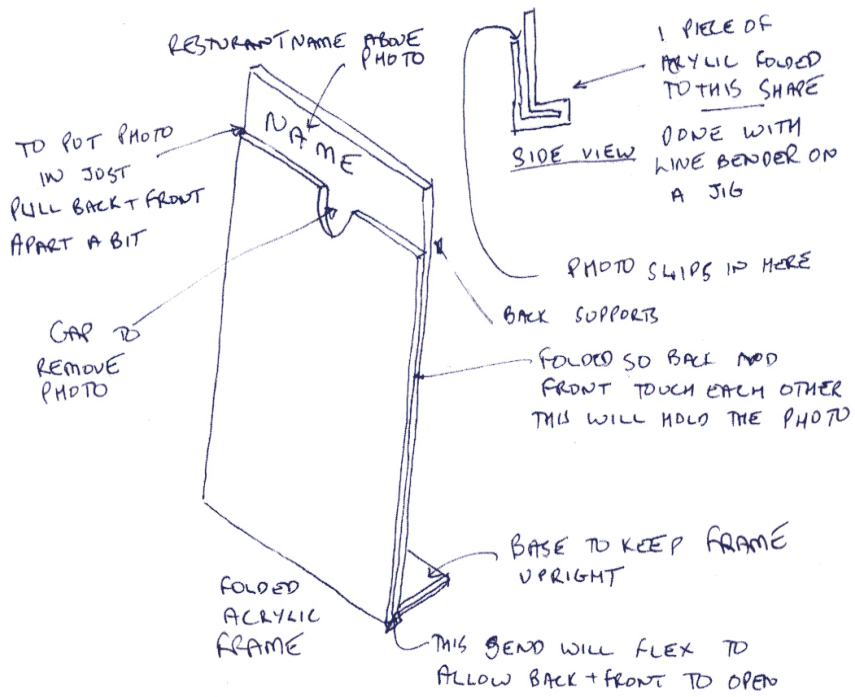 RESTURANT NAME ABOVE
PHOTO
NAME
TO PUT PHOTO
IN JUST
PULL BACK + FRONT
APART A BIT
GAP TO
REMOVE
PHOTO
1 PIECE OF
ACRYLIC FOLDED
TO THIS SHAPE
SIDE VIEW
DONE WITH
LINE BENDER ON
A JIG
PHOTO SLIPS IN HERE
BACK SUPPORTS
FOLDED SO BACK AND
FRONT TOUCH EACH OTHER
THIS WILL HOLD THE PHOTO
BASE TO KEEP FRAME
UPRIGHT
FOLDED
ACRYLIC
FRAME
THIS BEND WILL FLEX TO
ALLOW BACK + FRONT TO OPEN